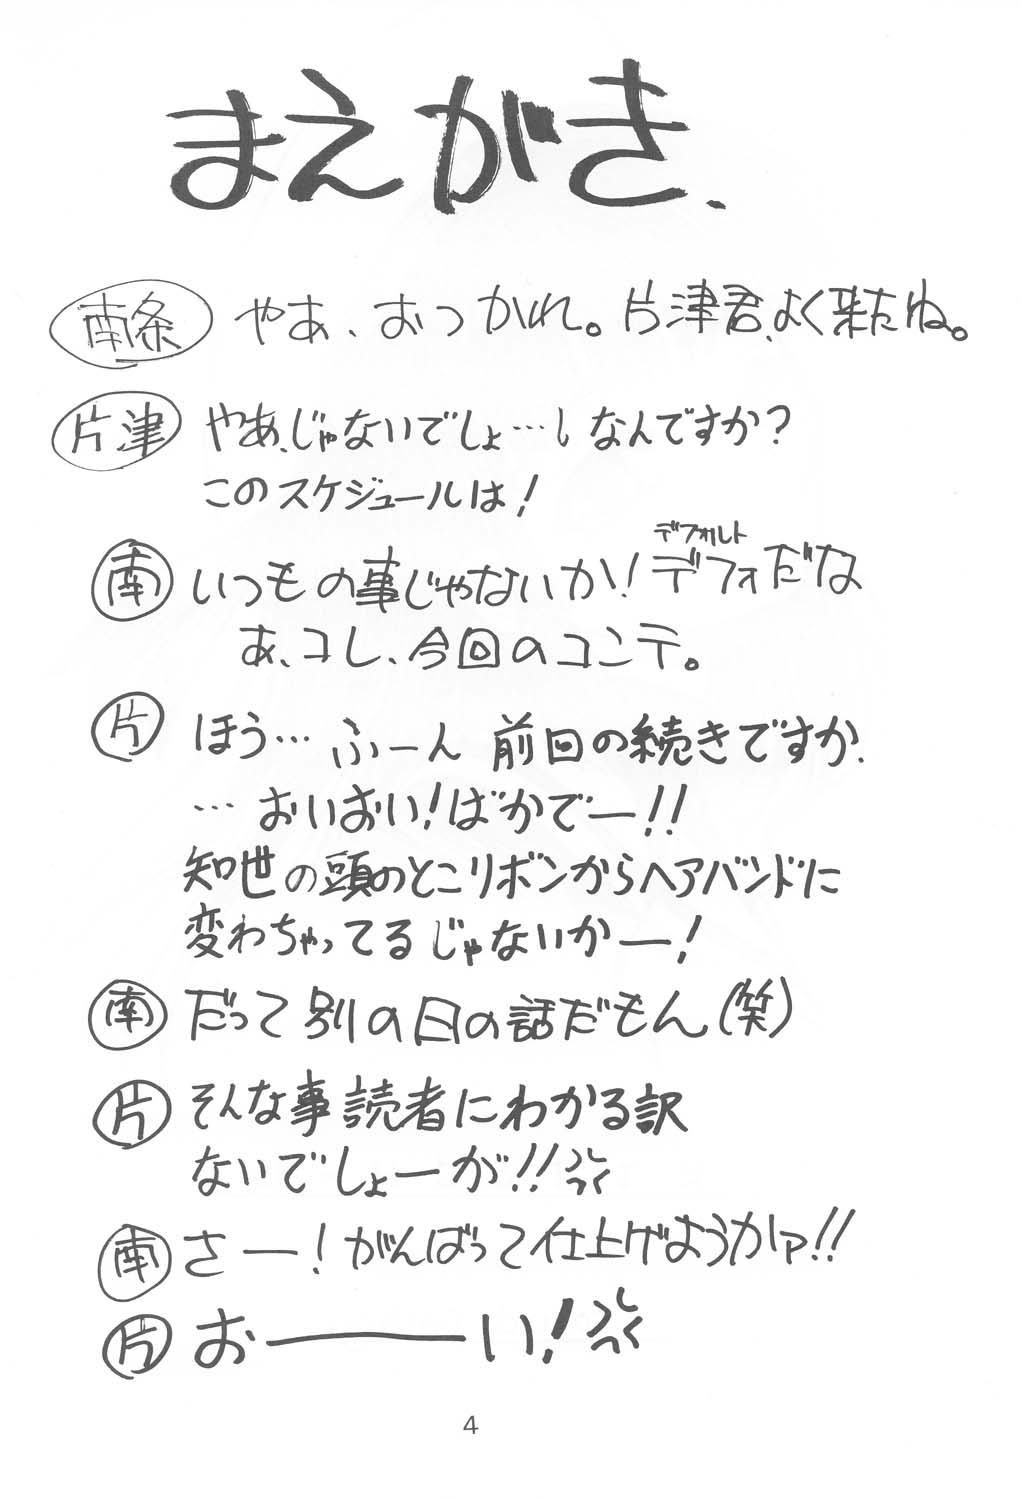 まえがき.
南条 やあ、おつかれ。片津君、よく来たね。
片津 やあ、じゃないでしょ…、なんですか?
このスケジュールは!
南 いつもの事じゃないか!デフォだな
デフォルト
あ、コレ、今回のコンテ。
片 ほう… ふーん 前回の続きですか.
… おいおい!ばかでー!!
知世の頭のとこリボンからヘアバンドに
変わちゃってるじゃないかー!
南 だって別の日の話だもん(笑)
片 そんな事読者にわかる訳
ないでしょーが!!
南 さー!がんばって仕上げようかァ!!
片 おーーーい!
4